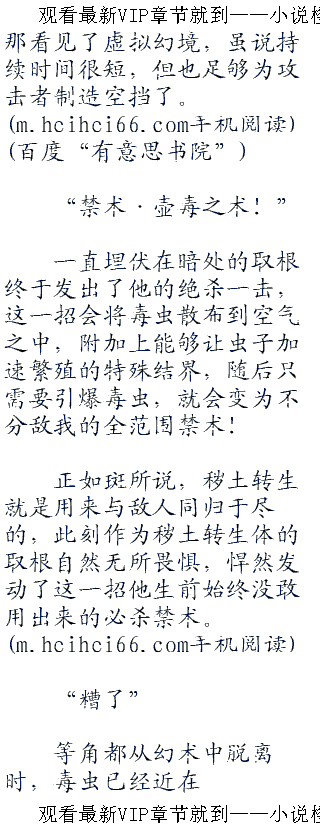 观看最新VIP章节就到——小说
那看见了虚拟幻境，虽说持
续时间很短，但也足够为攻
击者制造空挡了。
(m.hcihci66.com手机阅读)
(百度“有意思书院”)
“禁术·壶毒之术！”
一直埋伏在暗处的取根
终于发出了他的绝杀一击，
这一招会将毒虫散布到空气
之中，附加上能够让虫子加
速繁殖的特殊结界，随后只
需要引爆毒虫，就会变为不
分敌我的全范围禁术！
正如斑所说，秽土转生
就是用来与敌人同归于尽
的，此刻作为秽土转生体的
取根自然无所畏惧，悍然发
动了这一招他生前始终没敢
用出来的必杀禁术。
(m.hcihci66.com手机阅读)
“糟了”
等角都从幻术中脱离
时，毒虫已经近在
观看最新VIP章节就到——小说